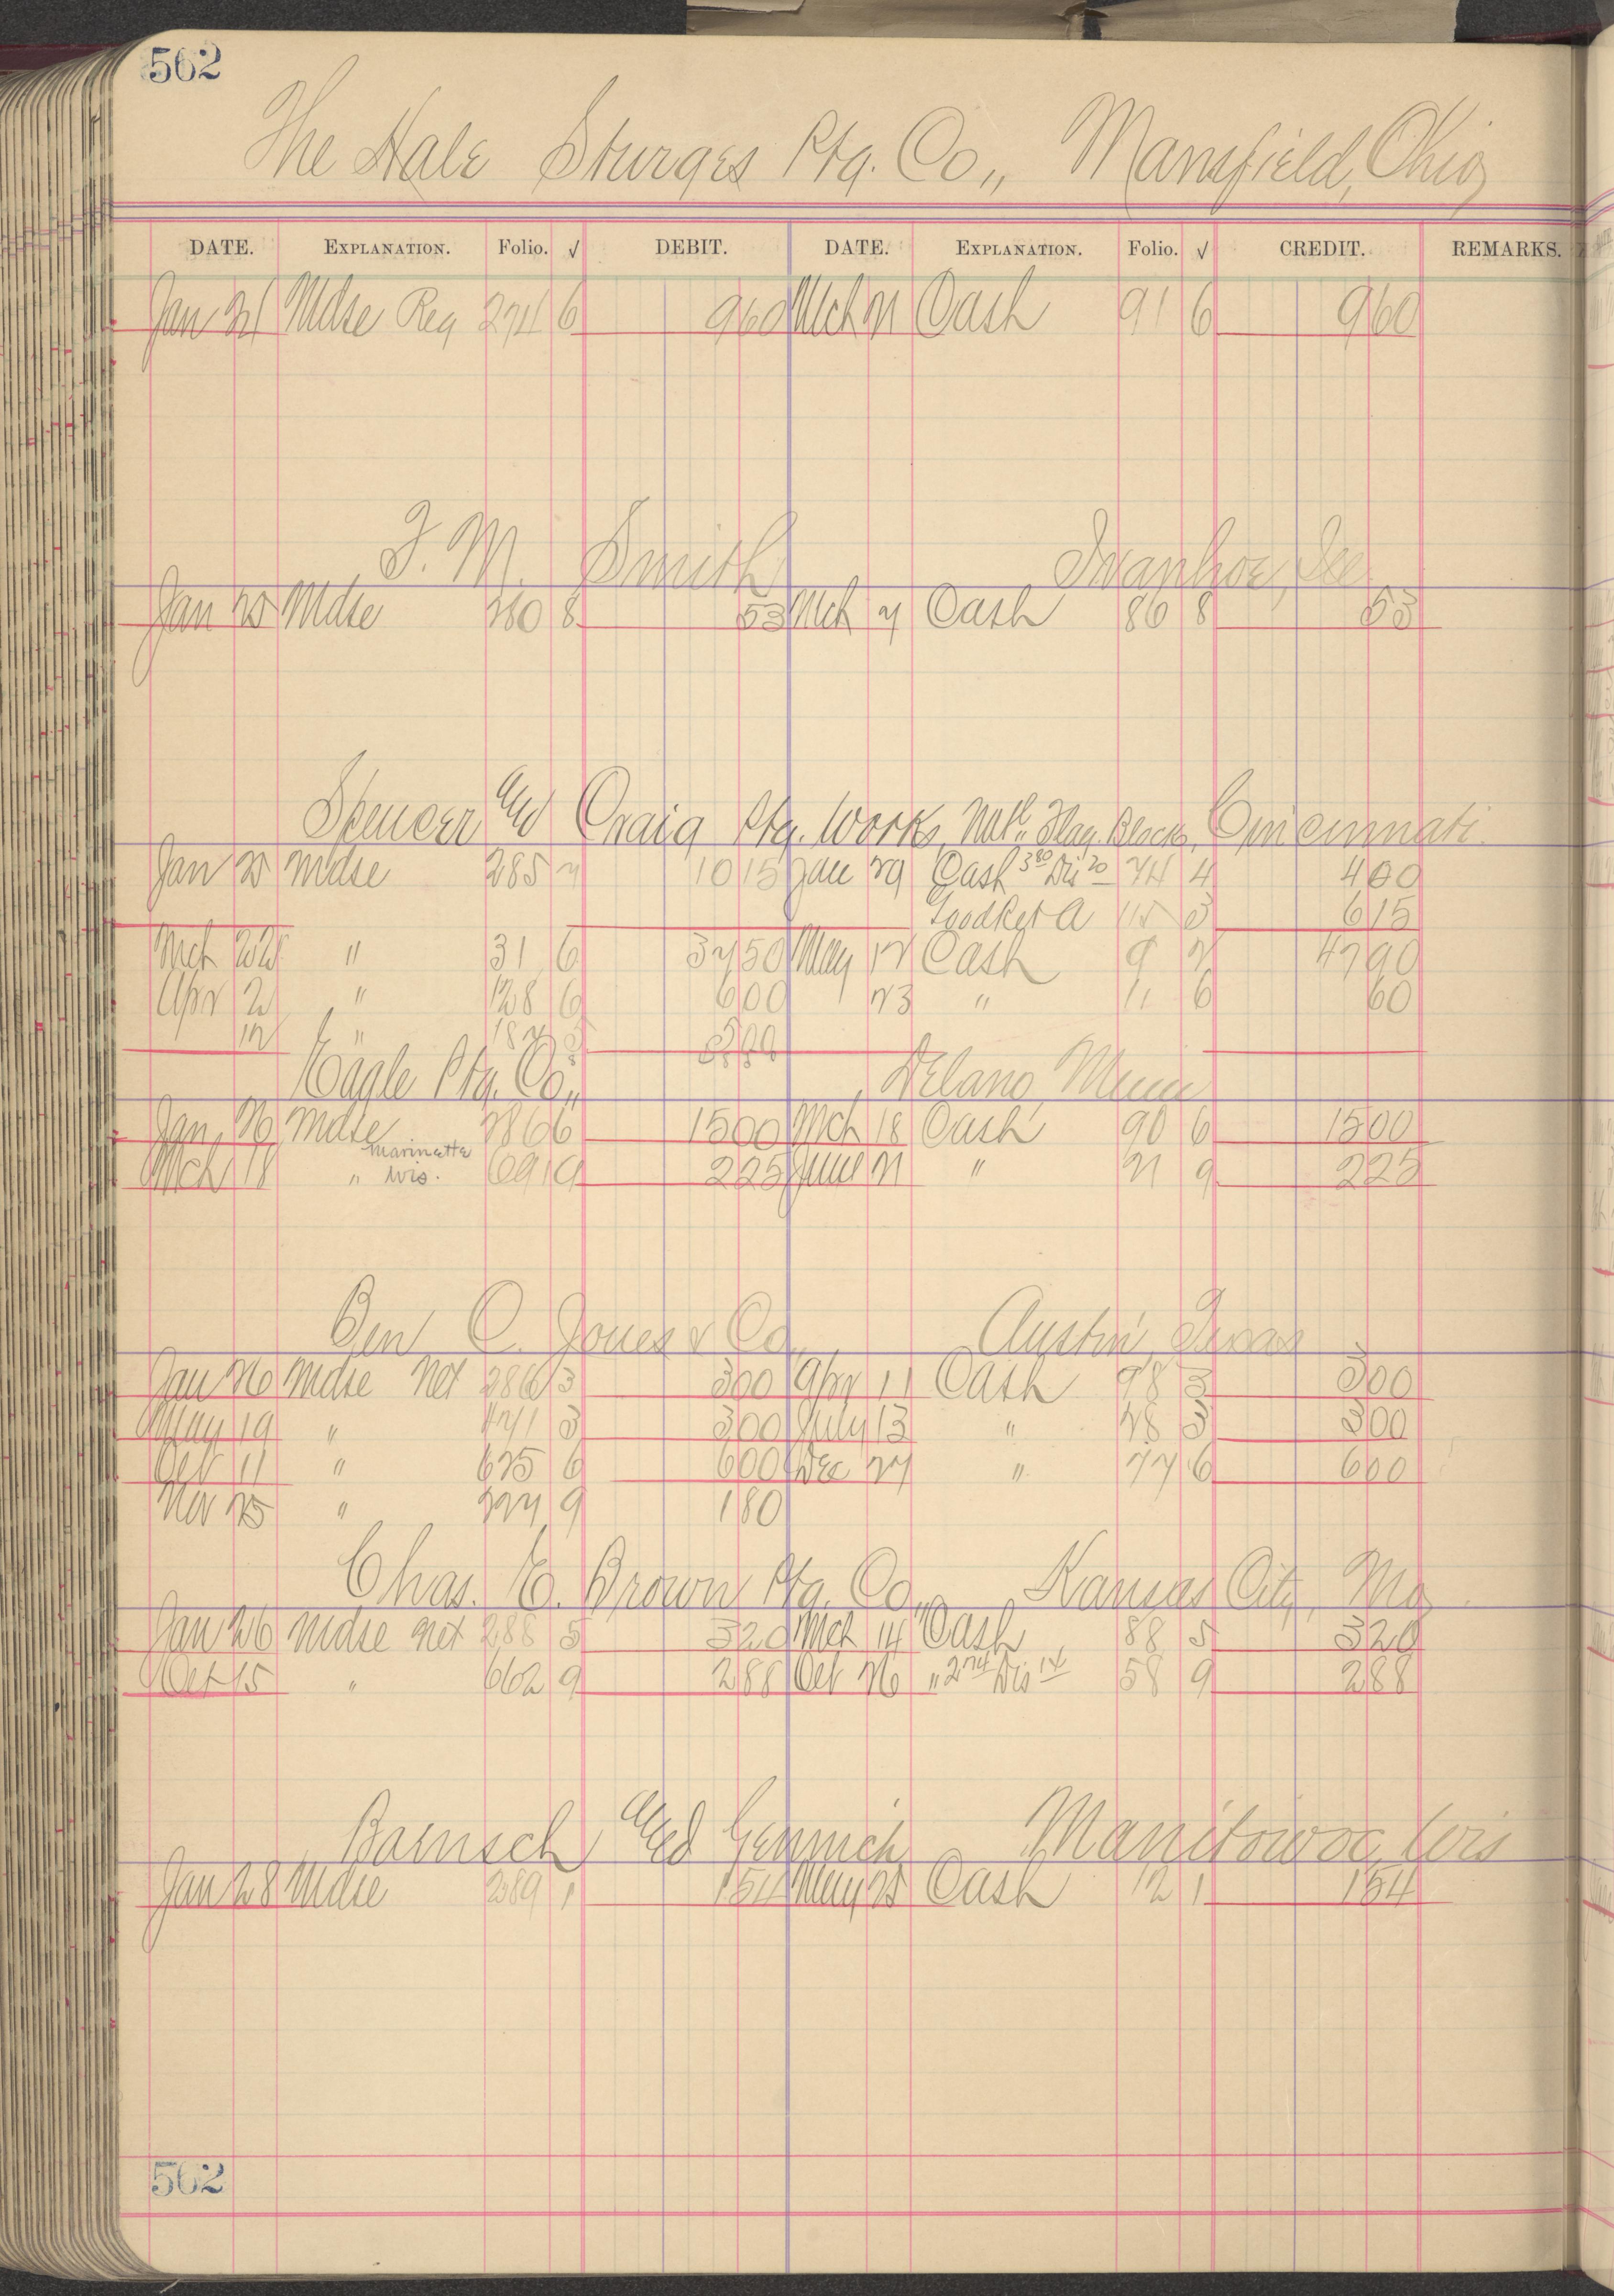 562
The Hale Sturges Ptg. Co,, Mansfield, Ohio
DATE. EXPLANATION. Folio. √ DEBIT. DATE. EXPLANATION. Folio. √ CREDIT. REMARKS.
Jan 21 Mdse Reg 274 6 960 Mch 21 Cash 91 6 960
F. M. Smith Ivanhoe, Ill
Jan 25 Mdse 280 8 53 Mch 7 Cash 86 8 53
Spencer and Craig Ptg. Works, Cincinnati
Jan 25 Mdse 285 7 1015 Jan 29 Cash 380 Dis 20 74 4 400
A 115 3 615
Mch 22 " 31 6 3750 May 17 Cash 9 7 4790
Apr 2 " 128 6 600 23 " 11 6 60
12 " 187 5 500
Eagle Ptg. Co,, Delano Minn
Jan 26 Mdse 286 6 1500 Mch 18 Cash 90 6 1500
Marinette
Mch 18 " Wis. 691 9 225 June 21 " 21 9 225
Ben C. Jones & Co,, Austin, Texas
Jan 26 Mdse Net 286 3 300 Apr 11 Cash 98 3 300
May 19 " 471 3 300 July 13 " 28 3 300
Oct 11 " 625 6 600 Dec 27 " 77 6 600
Nov 25 " 774 9 180
Chas. E. Brown Ptg. Co,, Kansas City, Mo
Jan 26 Mdse Net 288 5 320 Mch 14 Cash 88 5 320
Oct 15 " 662 9 288 Oct 26 " 274 Dis 14 58 9 288
Baensch and Gennrich Manitowoc, Wis
Jan 28 Mdse 289 1 154 May 25 Cash 12 1 154
562